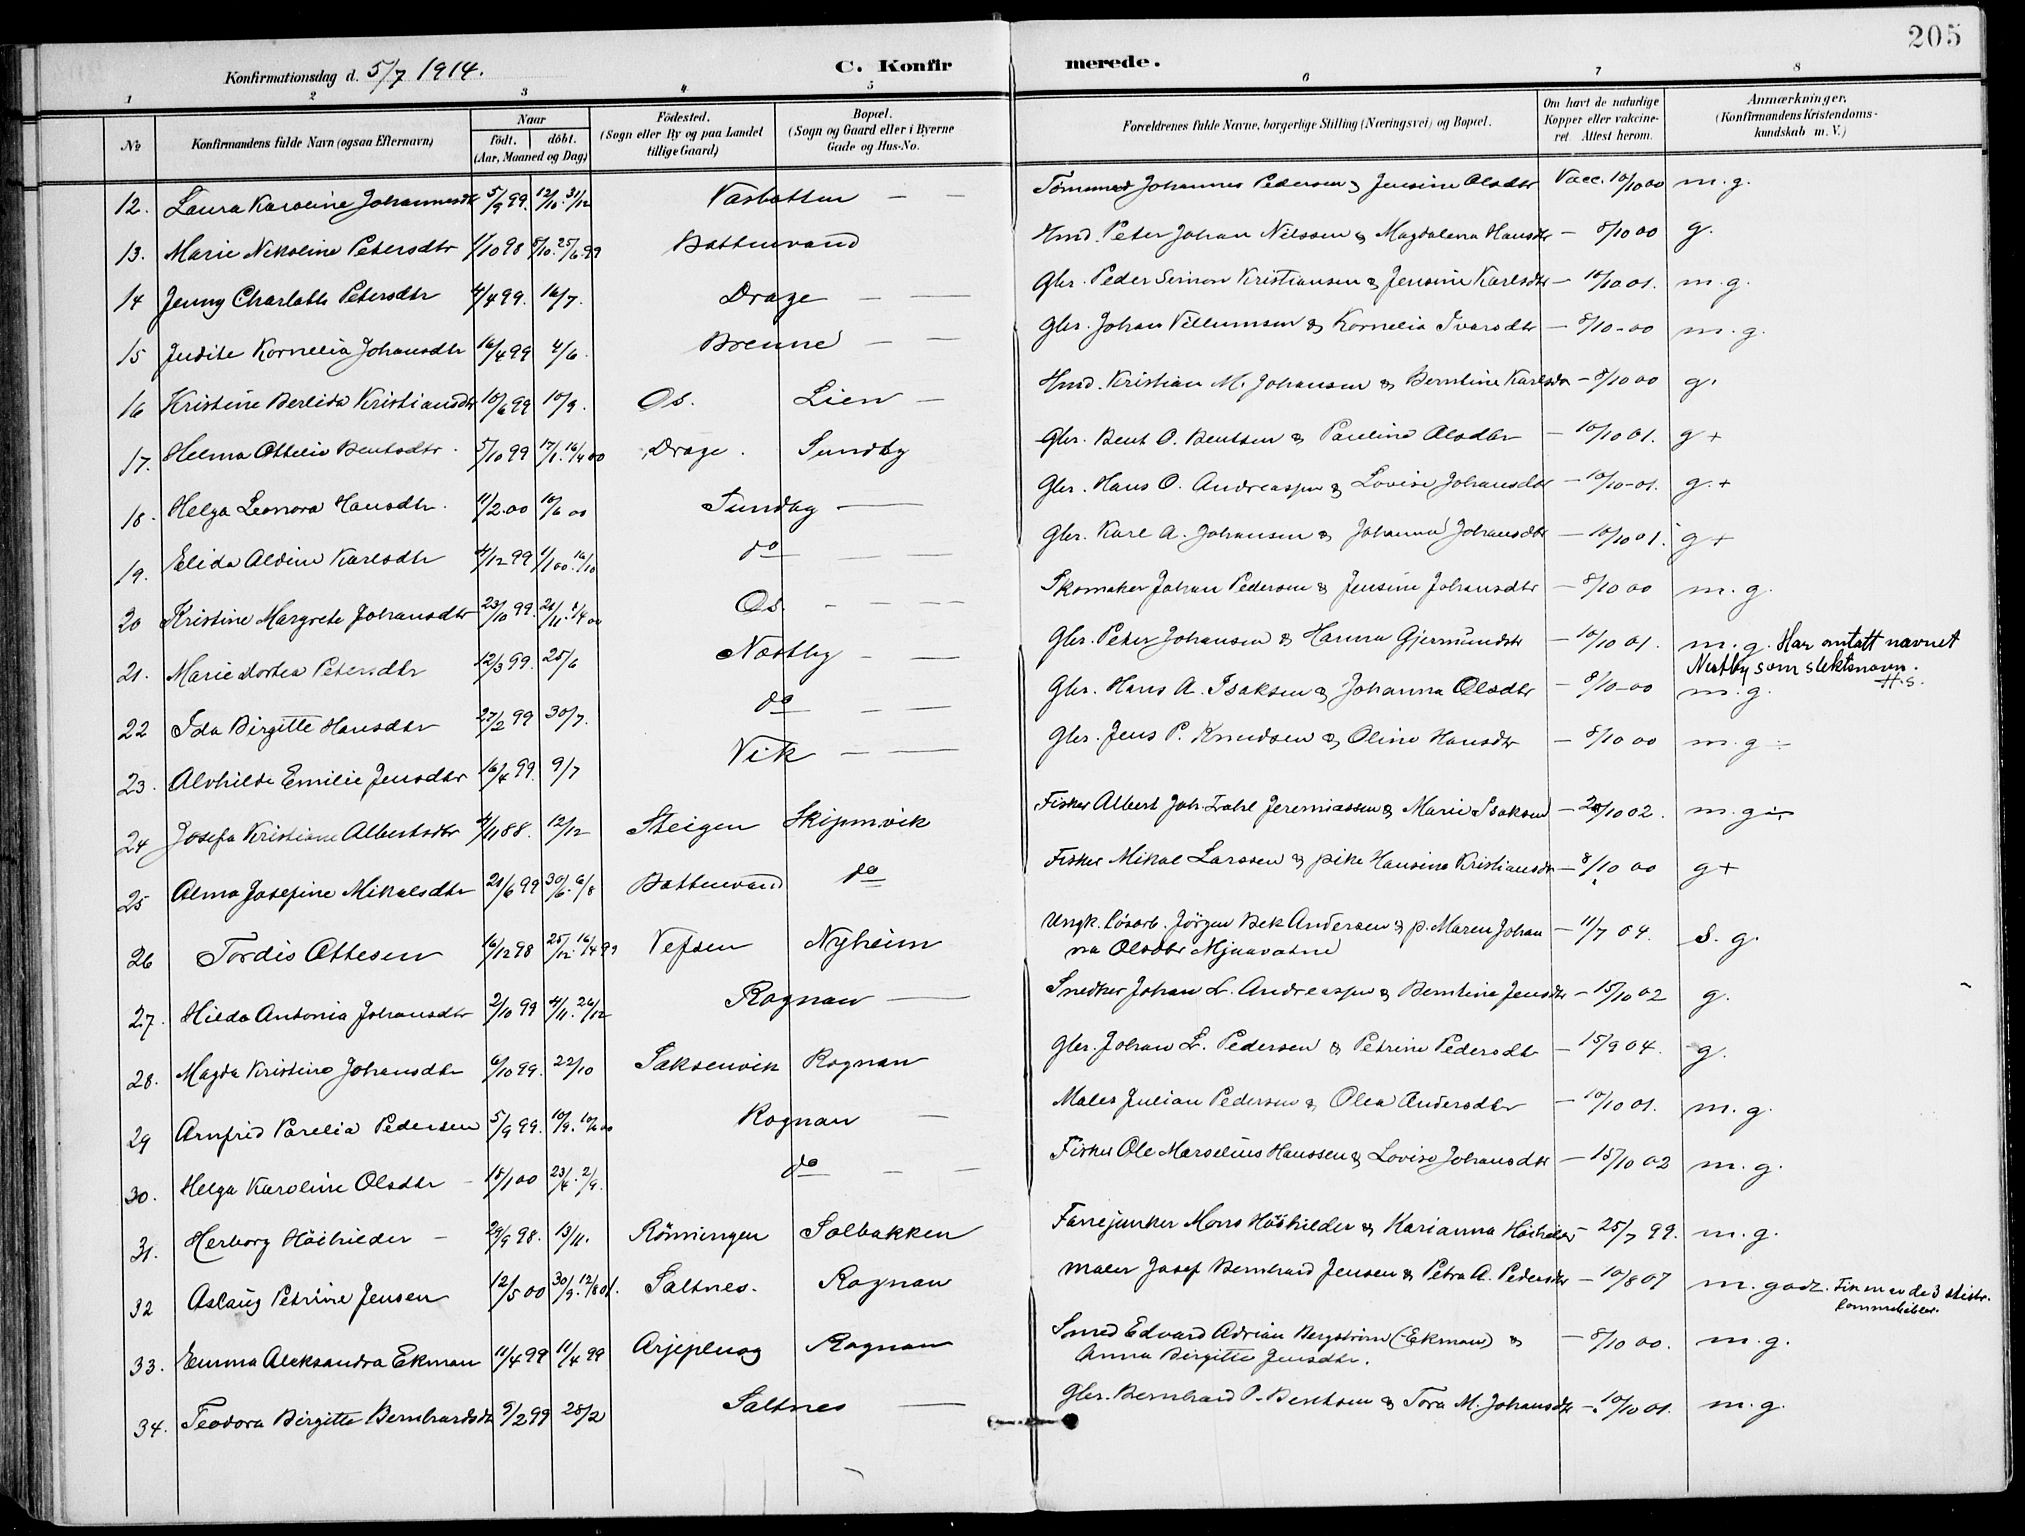 205
Konfirmationsdag d. 5/7 1914.
C. Konfirmerede.
1 2 3 4 5 6 7 8
No
Konfirmandens fulde Navn (ogsaa Efternavn)
Naar
født. døbt.
(Aar, Maaned og Dag)
Fødested.
(Sogn eller By og paa Landet
tillige Gaard)
Bopæl.
(Sogn og Gaard eller i Byerne
Gade og Hus-No.
Forældrenes fulde Navne, borgerlige Stilling (Næringsvei) og Bopæl.
Om havt de naturlige
Kopper eller vaccine-
ret Attest herom.
Anmærkninger.
(Konfirmandens Kristendoms-
kundskab m. V.)
12. Laura Karoline Johannesdtr 5/9 99 12/10. 31/12 — — Johannes Pedersen & Jensine Olsdtr Vacc. 10/10 00 m. g.
13. Marie Nikoline Petersdtr 1/10 98 8/10. 25/6 99 Bottenvand Hmd. Peter Johan Nilssen & Magdalena Hansdtr — 8/10 00 g.
14 Jenny Charlotte Petersdtr 4/4 99. 16/7. Drage — — Gbr. Peder Simon Kristiansen & Jensine Karlsdtr — 10/10 01. m. g.
15 Judite Kornelia Johansdtr 16/4 99 4/6. Brenne — — Gbr. Johan Villumsen & Kornelia Ivarsdtr — 8/10-00 m. g.
16 Kristine Berlida Kristiansdtr 10/6 99 10/9. Os. Lien — Hmd. Kristian M. Johansen & Berntine Karlsdtr — 8/10 00 g.
17. Helma Ottelie Bentsdtr. 5/10 99 17/1. 16/4 00 Drage. Sundby Gbr. Bent O. Bentsen & Pauline Olsdtr — 10/10 01. g +
18. Helga Leonora Hansdtr. 11/2.00 10/6 00 Sundby — Gbr. Hans O. Andreassen & Lovise Johansdtr — 10/10-01. g. +
19. Elida Aldine Karlsdtr 4/12 99 1/1 00. 16/10 do — — Gbr. Karl A. Johansen & Johanna Johansdtr — 10/10 01. g +
20 Kristine Margrete Johansdtr 23/10 99. 21/11. 1/4 00 Os. — — — Skomaker Johan Pedersen & Jensine Johansdtr — 8/10 00 m. g.
21. Marie Dortea Petersdtr 12/3 99. 25/6 Nestby — — Gbr. Peter Johansen & Hanna Gjermundsdtr — 10/10 01. m. g. Har antatt navnet
Nestby som slektsnavn.
H.S.
22 Ida Birgitte Hansdtr 27/2 99 30/7. do — — Gbr. Hans A. Isaksen & Johanna Olsdtr — 8/10-00 m. g.
23. Alvhilde Emilie Jensdtr 16/4 99. 9/7 Vik — — Gbr. Jens P. Knudsen & Oline Hansdtr — 8/10 00 m. g
24 Josefa Kristiane Albertsdtr 4/11 88. 12/12 Steigen Skipmvik Fisker Albert Joh. Zahl Jeremiassen & Marie Isaksen — 28/10 02. m. g
25 Alma Josefine Mikalsdtr 21/6 99 30/6. 6/8 Bottenvand do Fisker Mikal Larssen & pike Hansine Kristiansdtr — 8/10 00 g +
26 Tordis Ottesen 16/12 98 25/12. 16/4 99 Vefsen Nyheim Ungk. løsarb. Jörgen Bek Andersen & p. Maren Johan
na Olsdtr Mjaavatne — 11/7 04. s. g.
27. Hilda Antonia Johansdtr 2/10 99 4/11. 26/12 Rognan — Snedker Johan L. Andreassen & Berntine Jensdtr — 15/10 02 g.
28. Magda Kristine Johansdtr 6/10 99. 22/10 Saksenvik Rognan Gbr. Johan L. Pedersen & Petrine Pedersdtr — 15/9 04. g.
29 Arnfrid Parelia Pedersen 5/9 99. 10/9. 10/6 00 Rognan — Maler Julian Pedersen & Olea Andersdtr — 10/10 01. m. g.
30. Helga Karoline Olsdtr — 15/1 00 23/4. 2/9. do — — Fisker Ole Marselius Hanssen & Lovise Johansdtr — 15/10 02 m. g.
31. Herborg Höihilder — 29/9 98. 13/11. Rönningen Solbakken Fanejunker Mons Höihilder & Karianna Höihilder — 25/7 99. m. g.
32 Aslaug Petrine Jensen 12/5 00 30/9. 12/8 01. Saltnes. Rognan Maler Josef Bernhard Jensen & Petra A. Pedersdtr — 10/8 07 m. godt.
33. Emma Aleksandra Ekman 11/4 99 11/4 99 Arjepluog Rognan Smed Edvard Adrian Bergström (Ekman) &
Anna Birgitte Jensdtr. — 8/10 00. m. g.
34. Teodora Birgitte Bernhardsdtr 9/2 99 28/2 Saltnes — Gbr. Bernhard P. Bentsen & Tora M. Johansdtr — 10/10 01. m. g.